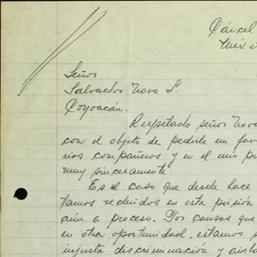 Cárcel
Señor
Salvador Novo L.
Coyoacán.
Respetado señor Novo
con el objeto de pedirle un fav
rios compañeros y en el mio p
muy sinceramente.
Es el caso que desde hace
tamos recluidos en esta prisión
aún a proceso. Por causas que
en otra oportunidad, estamos s
injusta discriminación y aisla